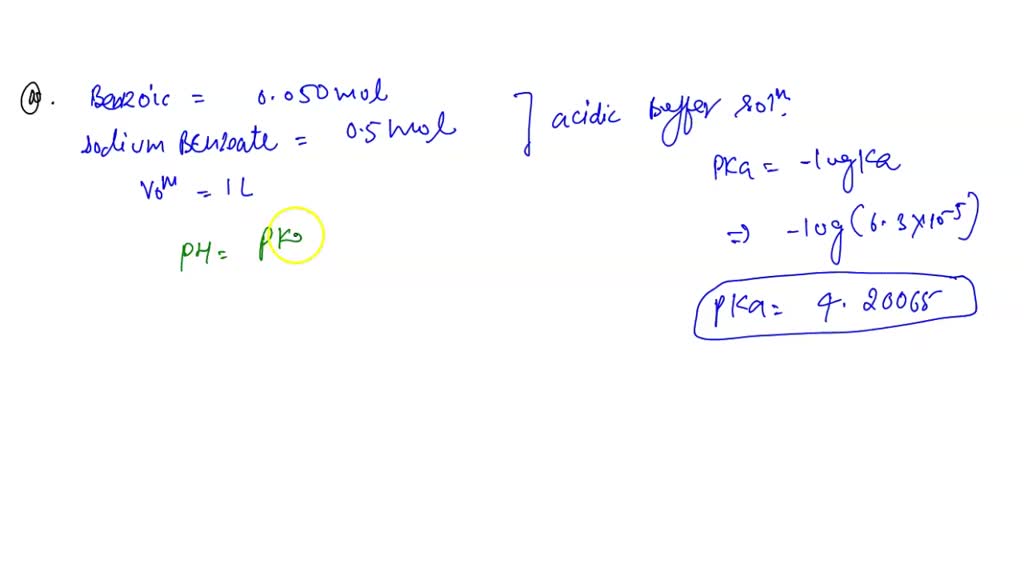 (a). Benzoic = 0.050 mol
Sodium BEnzoate = 0.5 mol
] acidic buffer solⁿ.
Volᵐ = 1 L
pH = pKa
PKa = -log Ka
⇒ -log (6.3×10⁻⁵)
pKa = 4.20065